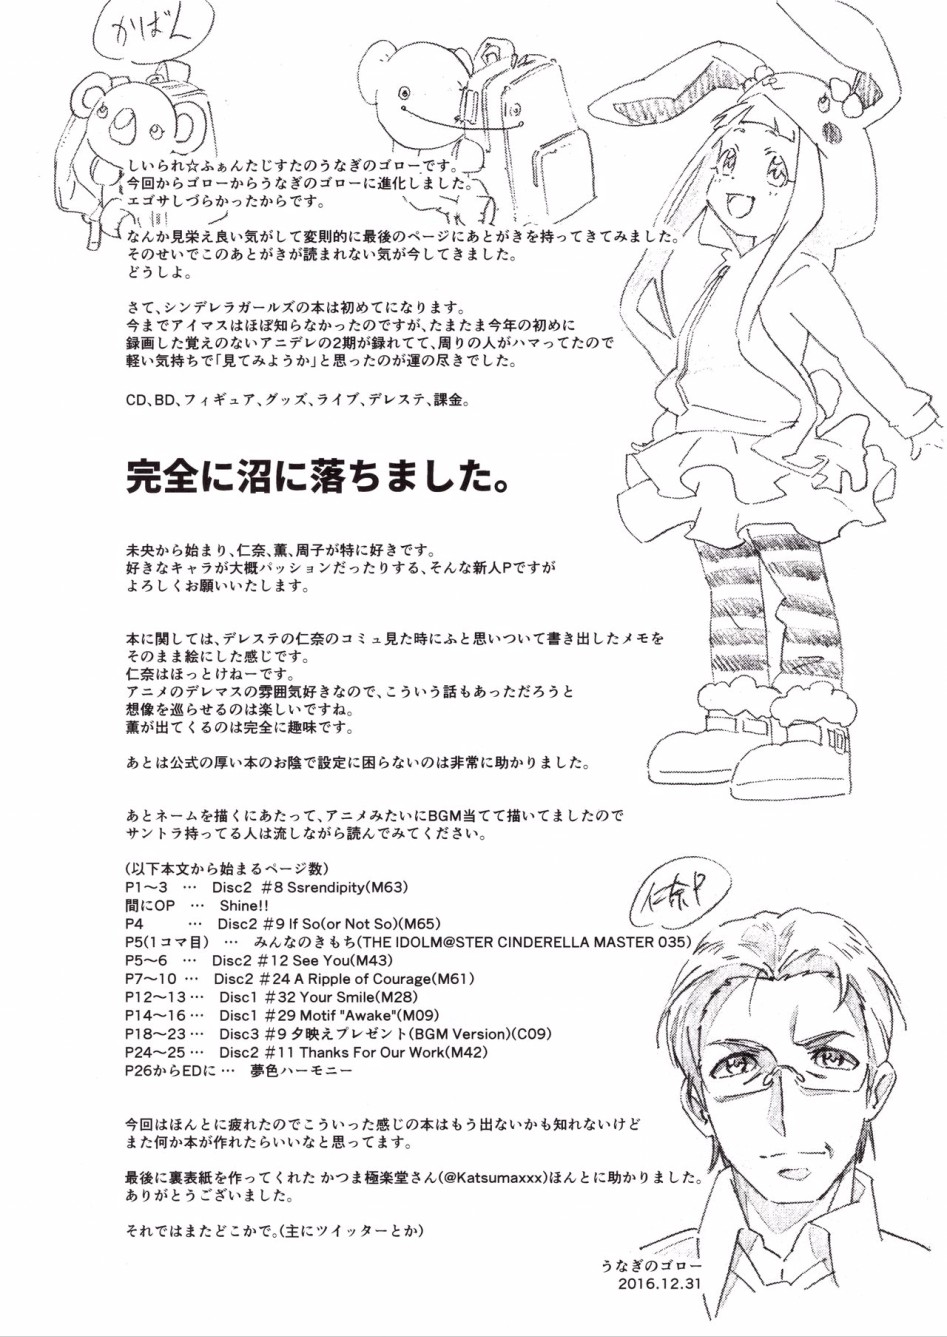 かばん
しいられ☆ふぁんたじすたのうなぎのゴローです。
今回からゴローからうなぎのゴローに進化しました。
エゴサしづらかったからです。
なんか見栄え良い気がして変則的に最後のページにあとがきを持ってきてみました。
そのせいでこのあとがきが読まれない気が今してきました。
どうしよ。
さて、シンデレラガールズの本は初めてになります。
今までアイマスはほぼ知らなかったのですが、たまたま今年の初めに
録画した覚えのないアニデレの2期が録れてて、周りの人がハマってたので
軽い気持ちで「見てみようか」と思ったのが運の尽きでした。
CD、BD、フィギュア、グッズ、ライブ、デレステ、課金。
完全に沼に落ちました。
未央から始まり、仁奈、薫、周子が特に好きです。
好きなキャラが大概パッションだったりする、そんな新人Pですが
よろしくお願いいたします。
本に関しては、デレステの仁奈のコミュ見た時にふと思いついて書き出したメモを
そのまま絵にした感じです。
仁奈はほっとけねーです。
アニメのデレマスの雰囲気好きなので、こういう話もあっただろうと
想像を巡らせるのは楽しいですね。
薫が出てくるのは完全に趣味です。
あとは公式の厚い本のお陰で設定に困らないのは非常に助かりました。
あとネームを描くにあたって、アニメみたいにBGM当てて描いてましたので
サントラ持ってる人は流しながら読んでみてください。
(以下本文から始まるページ数)
P1〜3 … Disc2 #8 Ssrendipity(M63)
間にOP … Shine!!
P4 … Disc2 #9 If So(or Not So)(M65)
P5(1コマ目) … みんなのきもち(THE IDOLM@STER CINDERELLA MASTER 035)
P5〜6 … Disc2 #12 See You(M43)
P7〜10 … Disc2 #24 A Ripple of Courage(M61)
P12〜13… Disc1 #32 Your Smile(M28)
P14〜16… Disc1 #29 Motif "Awake"(M09)
P18〜23… Disc3 #9 夕映えプレゼント(BGM Version)(C09)
P24〜25… Disc2 #11 Thanks For Our Work(M42)
P26からEDに… 夢色ハーモニー
仁奈P
今回はほんとに疲れたのでこういった感じの本はもう出ないかも知れないけど
また何か本が作れたらいいなと思ってます。
最後に裏表紙を作ってくれた かつま極楽堂さん(@Katsumaxxx)ほんとに助かりました。
ありがとうございました。
それではまたどこかで。(主にツイッターとか)
うなぎのゴロー
2016.12.31